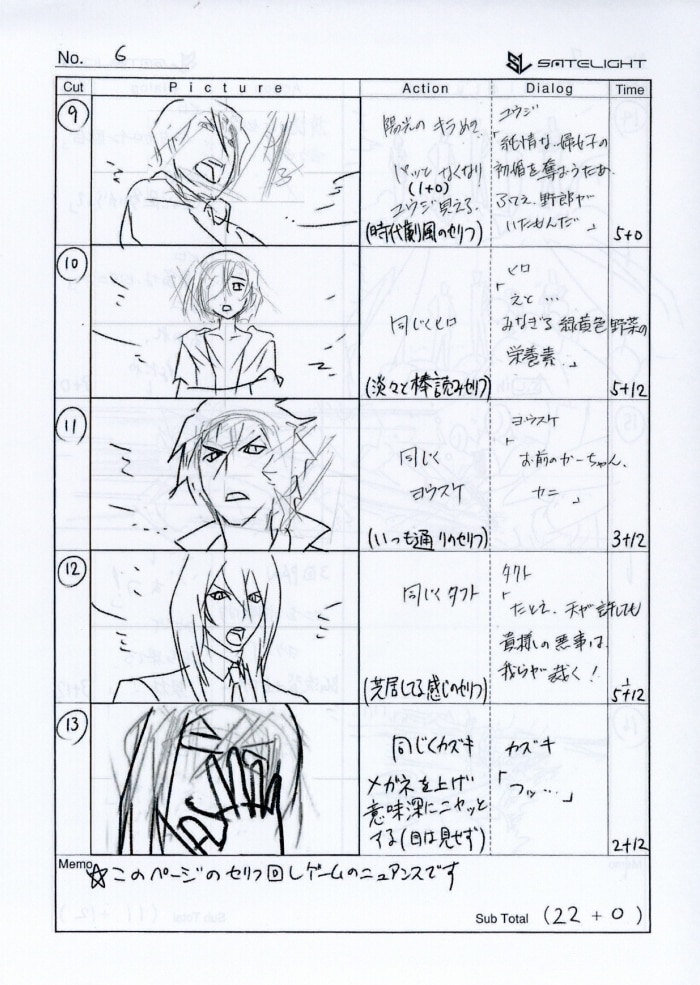 No. 6
SATELIGHT
Cut Picture Action Dialog Time
9
陽光の キラめき
パッと なくなり
(1+0)
ユウジ見える
(時代劇風のセリフ)
ユウジ
「純情な 婦女子の
初恋を奪おうたあ
ふてえ 野郎が
いたもんだ」
5+0
10
同じくヒロ
(淡々と棒読みセリフ)
ヒロ
「えと…
みなぎる 緑黄色野菜の
栄養素…」
5+12
11
同じく
ヨウスケ
(いつも通りのセリフ)
ヨウスケ
「お前のかーちゃん、
カニ」
3+12
12
同じくタクト
(芝居してる感じのセリフ)
タクト
「たとえ 天が許しても
貴様らの悪事は
我らが裁く!」
5+12
13
同じくカズキ
メガネを上げ
意味深にニヤッと
する(目は見せず)
カズキ
「フッ…」
2+12
Memo
☆このページのセリフ回しゲームのニュアンスです
Sub Total (22+0)